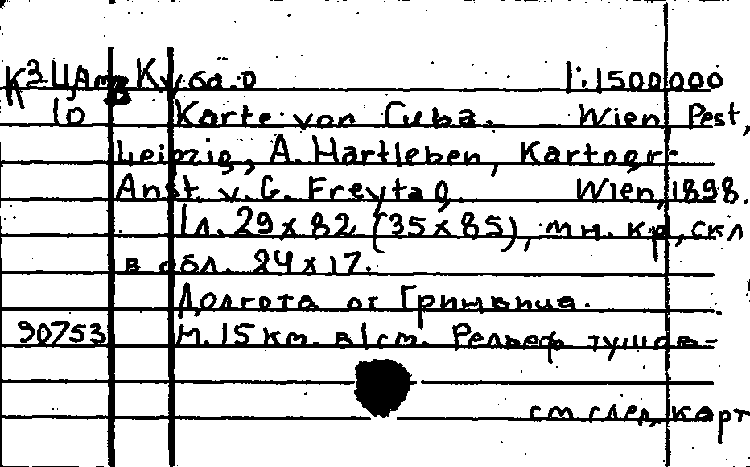 К3ЦАм Куба.0 1:1500000
10 Karte von Cuba. Wien, Pest,
Leipzig, A. Hartleben, Kartogr-
Anst. v. G. Freytag. Wien, 1898.
1л. 29x82 (35x85), мн. кр, скл
в обл. 24x17.
Долгота от Гринвича.
90753 М. 15 км. в 1 см. Рельеф тушов-
см след карт